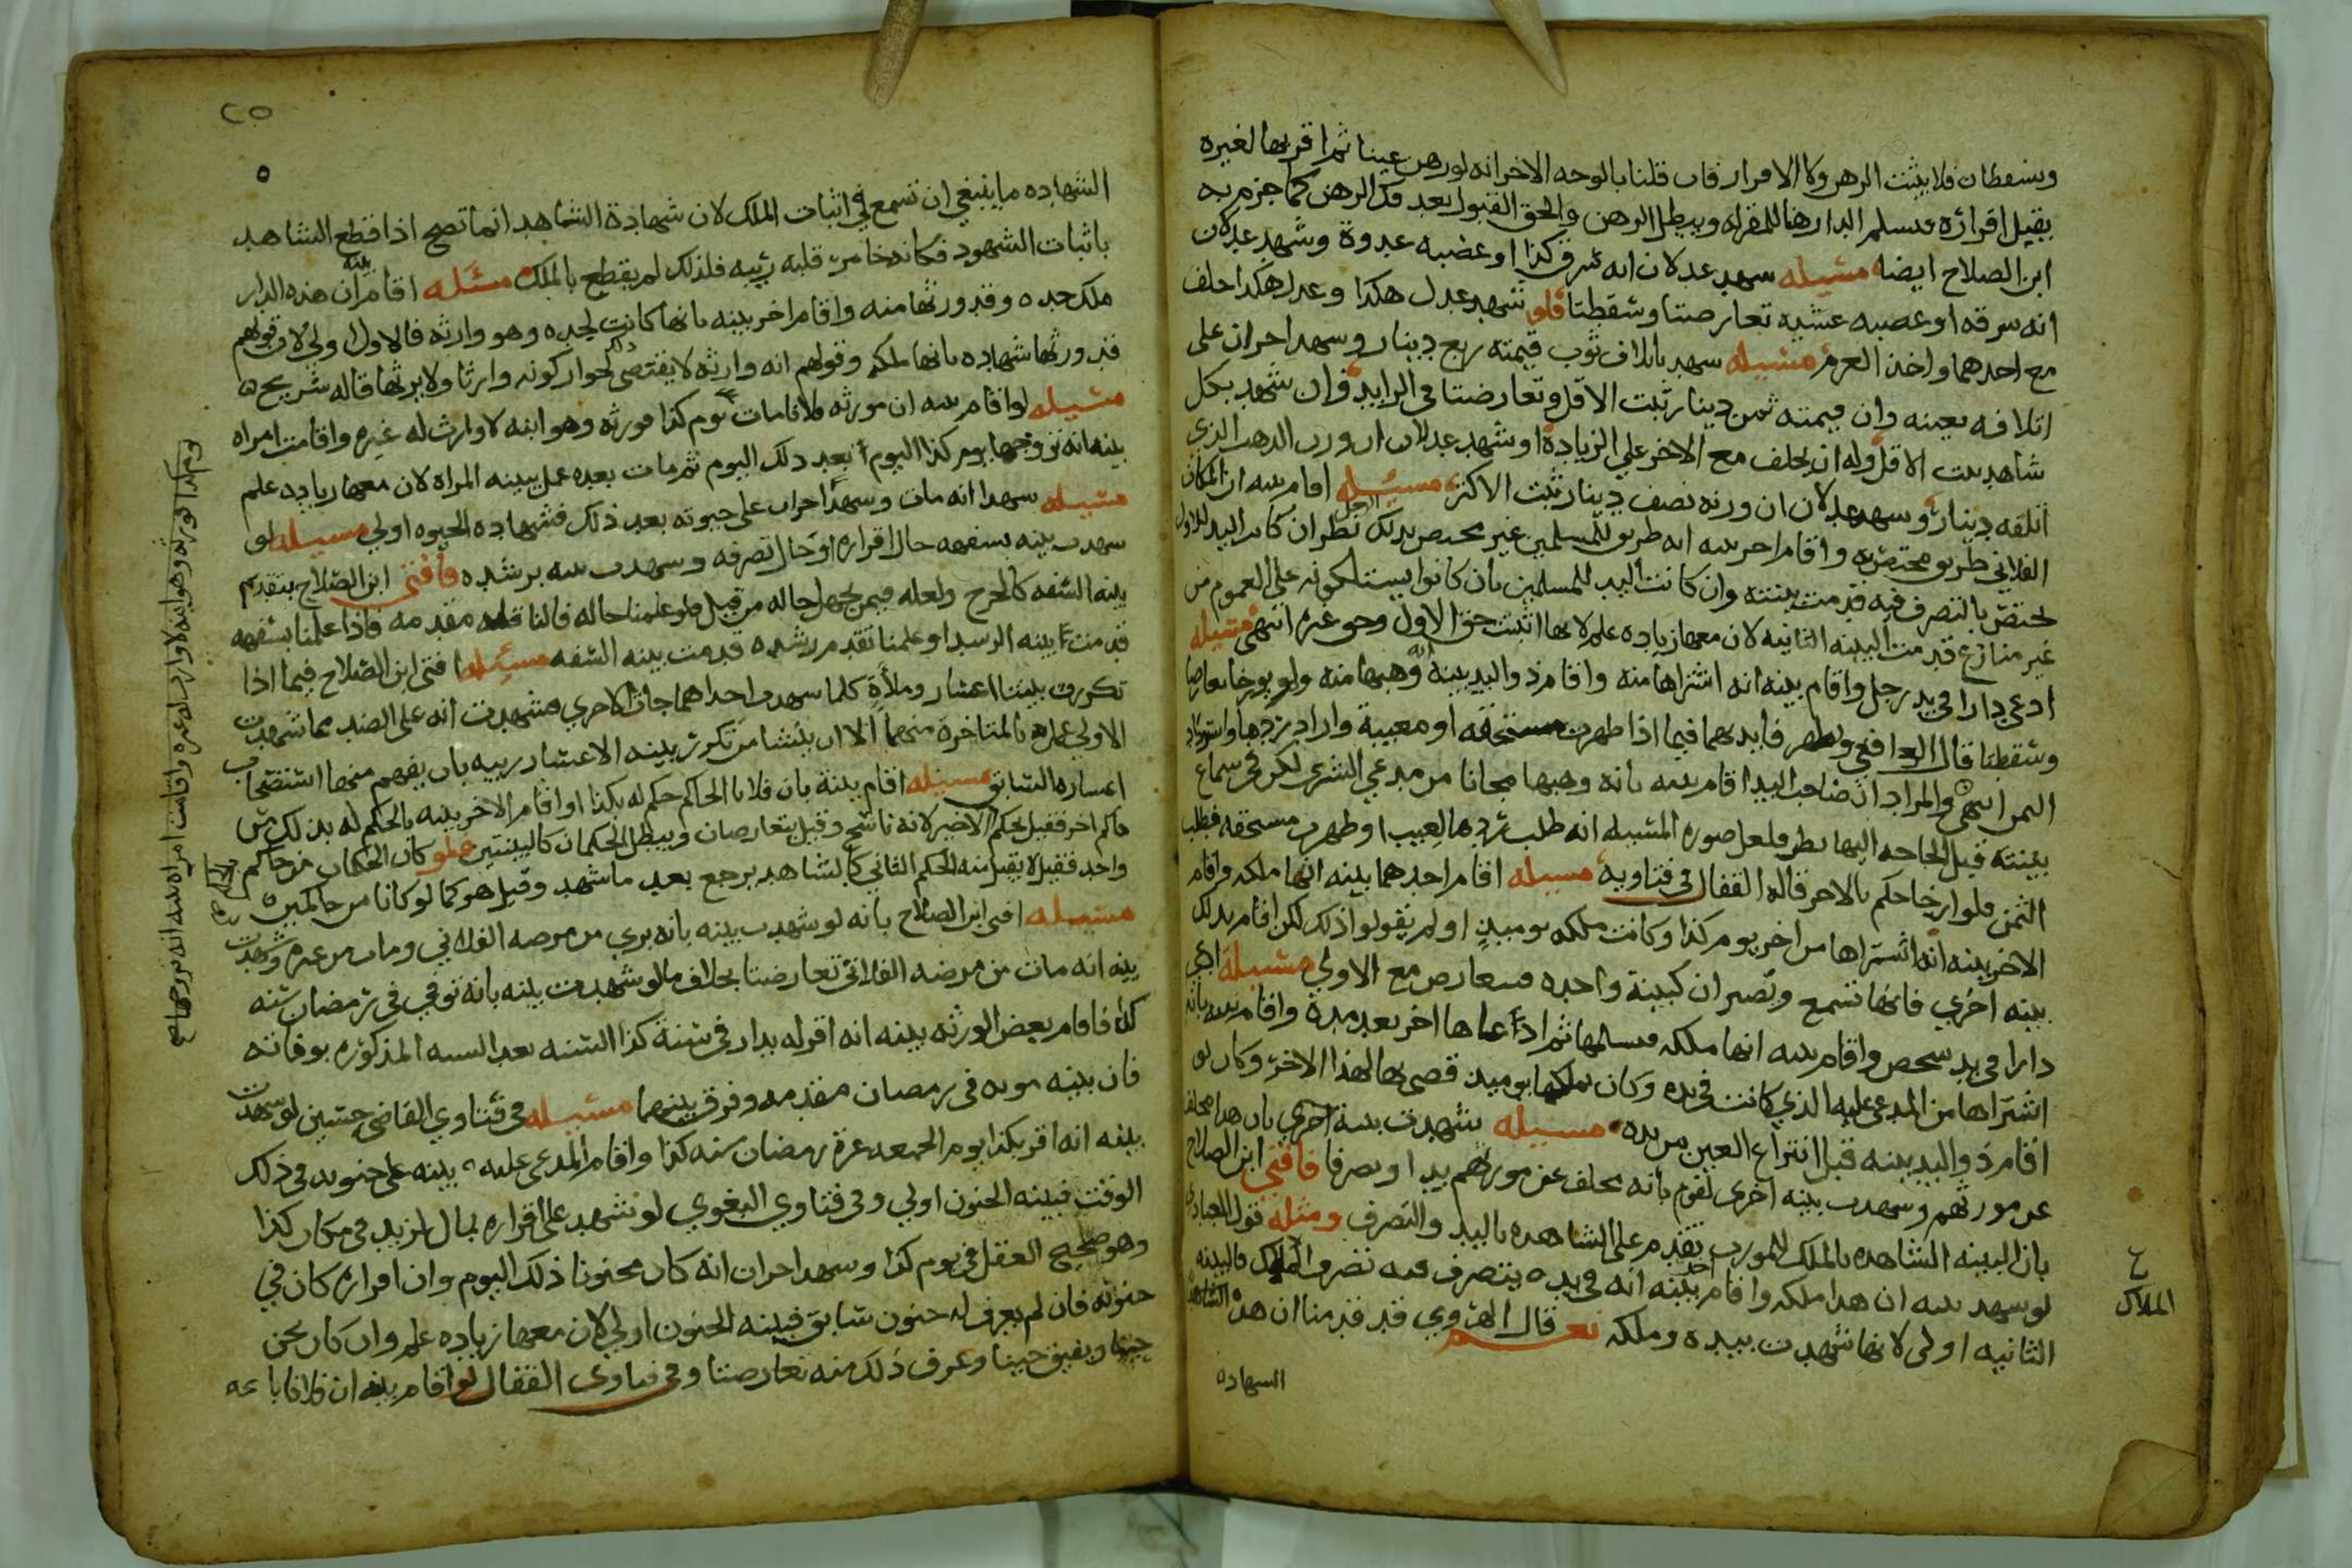 وتسقطان فلا يثبت الرهن ولا الاقرار فان قلنا بالوجه الاخر انه لو رهن عينا ثم اقر بها لغيره
يقبل اقراره فتسلم الدار هنا للمقر له ويبطل الرهن والحق القبول بعد فك الرهن كما جزم به
ابن الصلاح ايضا مسيله سهد عدلان انه سرق كذا او غصبه غدوة وشهد عدلان
انه سرقه او غصبه عشيه تعارضتا وسقطتا فلو شهد عدل هكذا وعدل هكذا حلف
مع احدهما واخذ الغرم مسيله سهد باتلاف ثوب قيمته ربع دينار وسهد اخران على
اتلافه بعينه وان قيمته ثمن دينار ثبت الاقل وتعارضتا في الزايد وان شهد بكل
شاهد ثبت الاقل وله ان يحلف مع الاخر على الزيادة او شهد عدلان ان وزن الذهب الذي
اتلفه دينار وسهد عدلان ان وزنه نصف دينار ثبت الاكثر مسيله اقام بينه ان المكان
الفلاني طريق مختص به واقام اخر بينه انه طريق للمسلمين غير مختص بذلك نظر ان كانت اليد للاول
مختص بالتصرف فيه قدمت بينته وان كانت اليد للمسلمين بان كانوا يستلكونه على العموم من
غير منازع قدمت البينه الثانيه لان معها زياده علم لانها اثبتت حق الاول وحق غيره انتهى مسيله
ادعى دارا في يد رجل واقام بينه انه اشتراها منه واقام ذو اليد بينة انه وهبها منه ولم يورخا تعارضا
وسقطتا قال الرافعي وتظهر فايدتهما فيما اذا ظهرت مستحقه او معيبة واراد ردها واسترداد
الثمن انتهى والمراد ان صاحب اليد اقام بينه بانه وهبها مجانا من مدعي الشرى لكن في سماع
بينته قبل الحاجه اليها نظر فلعل صوره المسيله انه طلب ردها لعيب او ظهرت مستحقه فطلب
الثمن فلو ارخا حكم بالاخر قاله القفال في فتاويه مسيله اقام احدهما بينه انها ملكه واقام
الاخر بينه انه اشتراها من اخر يوم كذا وكانت ملكه يوميذ او لم يقولوا ذلك لكن اقام بذلك
بينه اخرى فانها تسمع وتصيران كبينة واحده فتتعارض مع الاولى مسيلة ادعى
دارا في يد سخص واقام بينه انها ملكه فتسلمها ثم ادعاها اخر بعد مدة واقام بينه بانه
اشتراها من المدعى عليه الذي كانت في يده وكان يملكها يوميذ قضى بها لهذا الاخر وكان لو
اقام ذو اليد بينه قبل انتزاع العين من يده مسيله شهدت بينة اخرى بان هذا مخلف
عن مورثهم وسهدت بينه اخرى لقوم بانه مخلف عن مورثهم يدا وتصرفا فافتى ابن الصلاح
بان البينه الشاهده بالملك للمورث تقدم على الشاهده باليد والتصرف ومثله قول العبادي
لو سهد بينه ان هذا ملكه واقام اخر بينه انه في يده يتصرف فيه تصرف الملاك فالبينه
الثانيه اولى لانها شهدت بيده وملكه نعم قال الهروي قد قدمنا ان هذه الشاهدة
السهاده
الملاك
٢٥
الشهاده ما ينبغي ان تسمع في اثبات الملك لان شهادة الشاهد انما تصح اذا قطع الشاهد
باثبات الشهود فكانه خامر قلبه ريبه فلذلك لم يقطع بالملك مسئله اقام بينه ان هذه الدار
ملك جده وقد ورثها منه واقام اخر بينه بانها كانت لجده وهو وارثه فالاول اولى لان قولهم
قد ورثها شهاده بانها ملكه وقولهم انه وارثه لا يقتضي ذلك لجواز كونه وارثا ولا يرثها قاله شريح
مسيله لو اقام بينه ان مورثه فلانا مات يوم كذا فورثه وهو ابنه لا وارث له غيره واقامت امراه
بينه انه تزوجها يوم كذا اليوم بعد ذلك اليوم ثم مات بعده عمل ببينه المراه لان معها زياده علم
مسيله سهدا انه مات وسهد اخران على حيوته بعد ذلك فشهاده الحيوه اولى مسيله لو
سهدت بينه بسفهه حال اقراره او حال تصرفه وسهدت بينه برشده فأفتى ابن الصلاح بتقديم
بينه السفه كالجرح ولعله فيمن يجهل حاله من قبل فلو علمنا حاله فالناقله مقدمه فاذا علمنا بسفهه
قدمت بينه الرسد او علمنا تقدم رشده قدمت بينه السفه مسيله افتى ابن الصلاح فيما اذا
تكررت بينتا اعسار وملأة كلما سهدت احداهما جات الاخرى فشهدت انه على الضد مما شهدت
الاولى عمل بالمتاخرة منهما الا ان ينشا من تكرر بينه الاعسار ريبه بان يفهم منها استصحاب
اعساره السابق مسيله اقام بينة بان فلانا الحاكم حكم له بكذا واقام الاخر بينه بالحكم له بذلك من
حاكم اخر فقيل يحكم الاخير لانه ناسخ وقيل يتعارضان ويبطل الحكمان كالبينتين فلو كان الحكمان من حاكم
واحد فقيل لا يقبل منه الحكم الثاني كالشاهد يرجع بعد ما شهد وقيل هو كما لو كانا من حاكمين
مسيله افتى ابن الصلاح بانه لو شهدت بينه بانه بري من مرضه الفلاني ومات من غيره وشهدت
بينه انه مات من مرضه الفلاني تعارضتا بخلاف ما لو شهدت بينه بانه توفي في رمضان سنه
كذا فاقام بعض الورثه بينه انه اقر له بدار في سنة كذا السنه بعد السنه المذكوره بوفاته
فان بينه موته في رمضان مقدمه وفرق بينهما مسيله في فتاوي القاضي حسين لو سهدت
بينه انه اقر بكذا يوم الجمعه غرة رمضان سنه كذا واقام المدعى عليه بينه على جنونه في ذلك
الوقت فبينه الجنون اولى وفي فتاوي البغوي لو شهد على اقراره بمال لزيد في مكان كذا
وهو صحيح العقل في يوم كذا وسهد اخران انه كان مجنونا ذلك اليوم وان اقراره كان في
جنونه فان لم يعرف له جنون سابق فبينه الجنون اولى لان معها زياده علم وان كان يجن
حينا ويفيق حينا وعرف ذلك منه تعارضتا وفي فتاوى القفال لو اقام بينه ان فلانا باعه
يوم كذا فورثه وهو ابنه لا وارث له غيره واقامت امراه بينه انه تزوجها